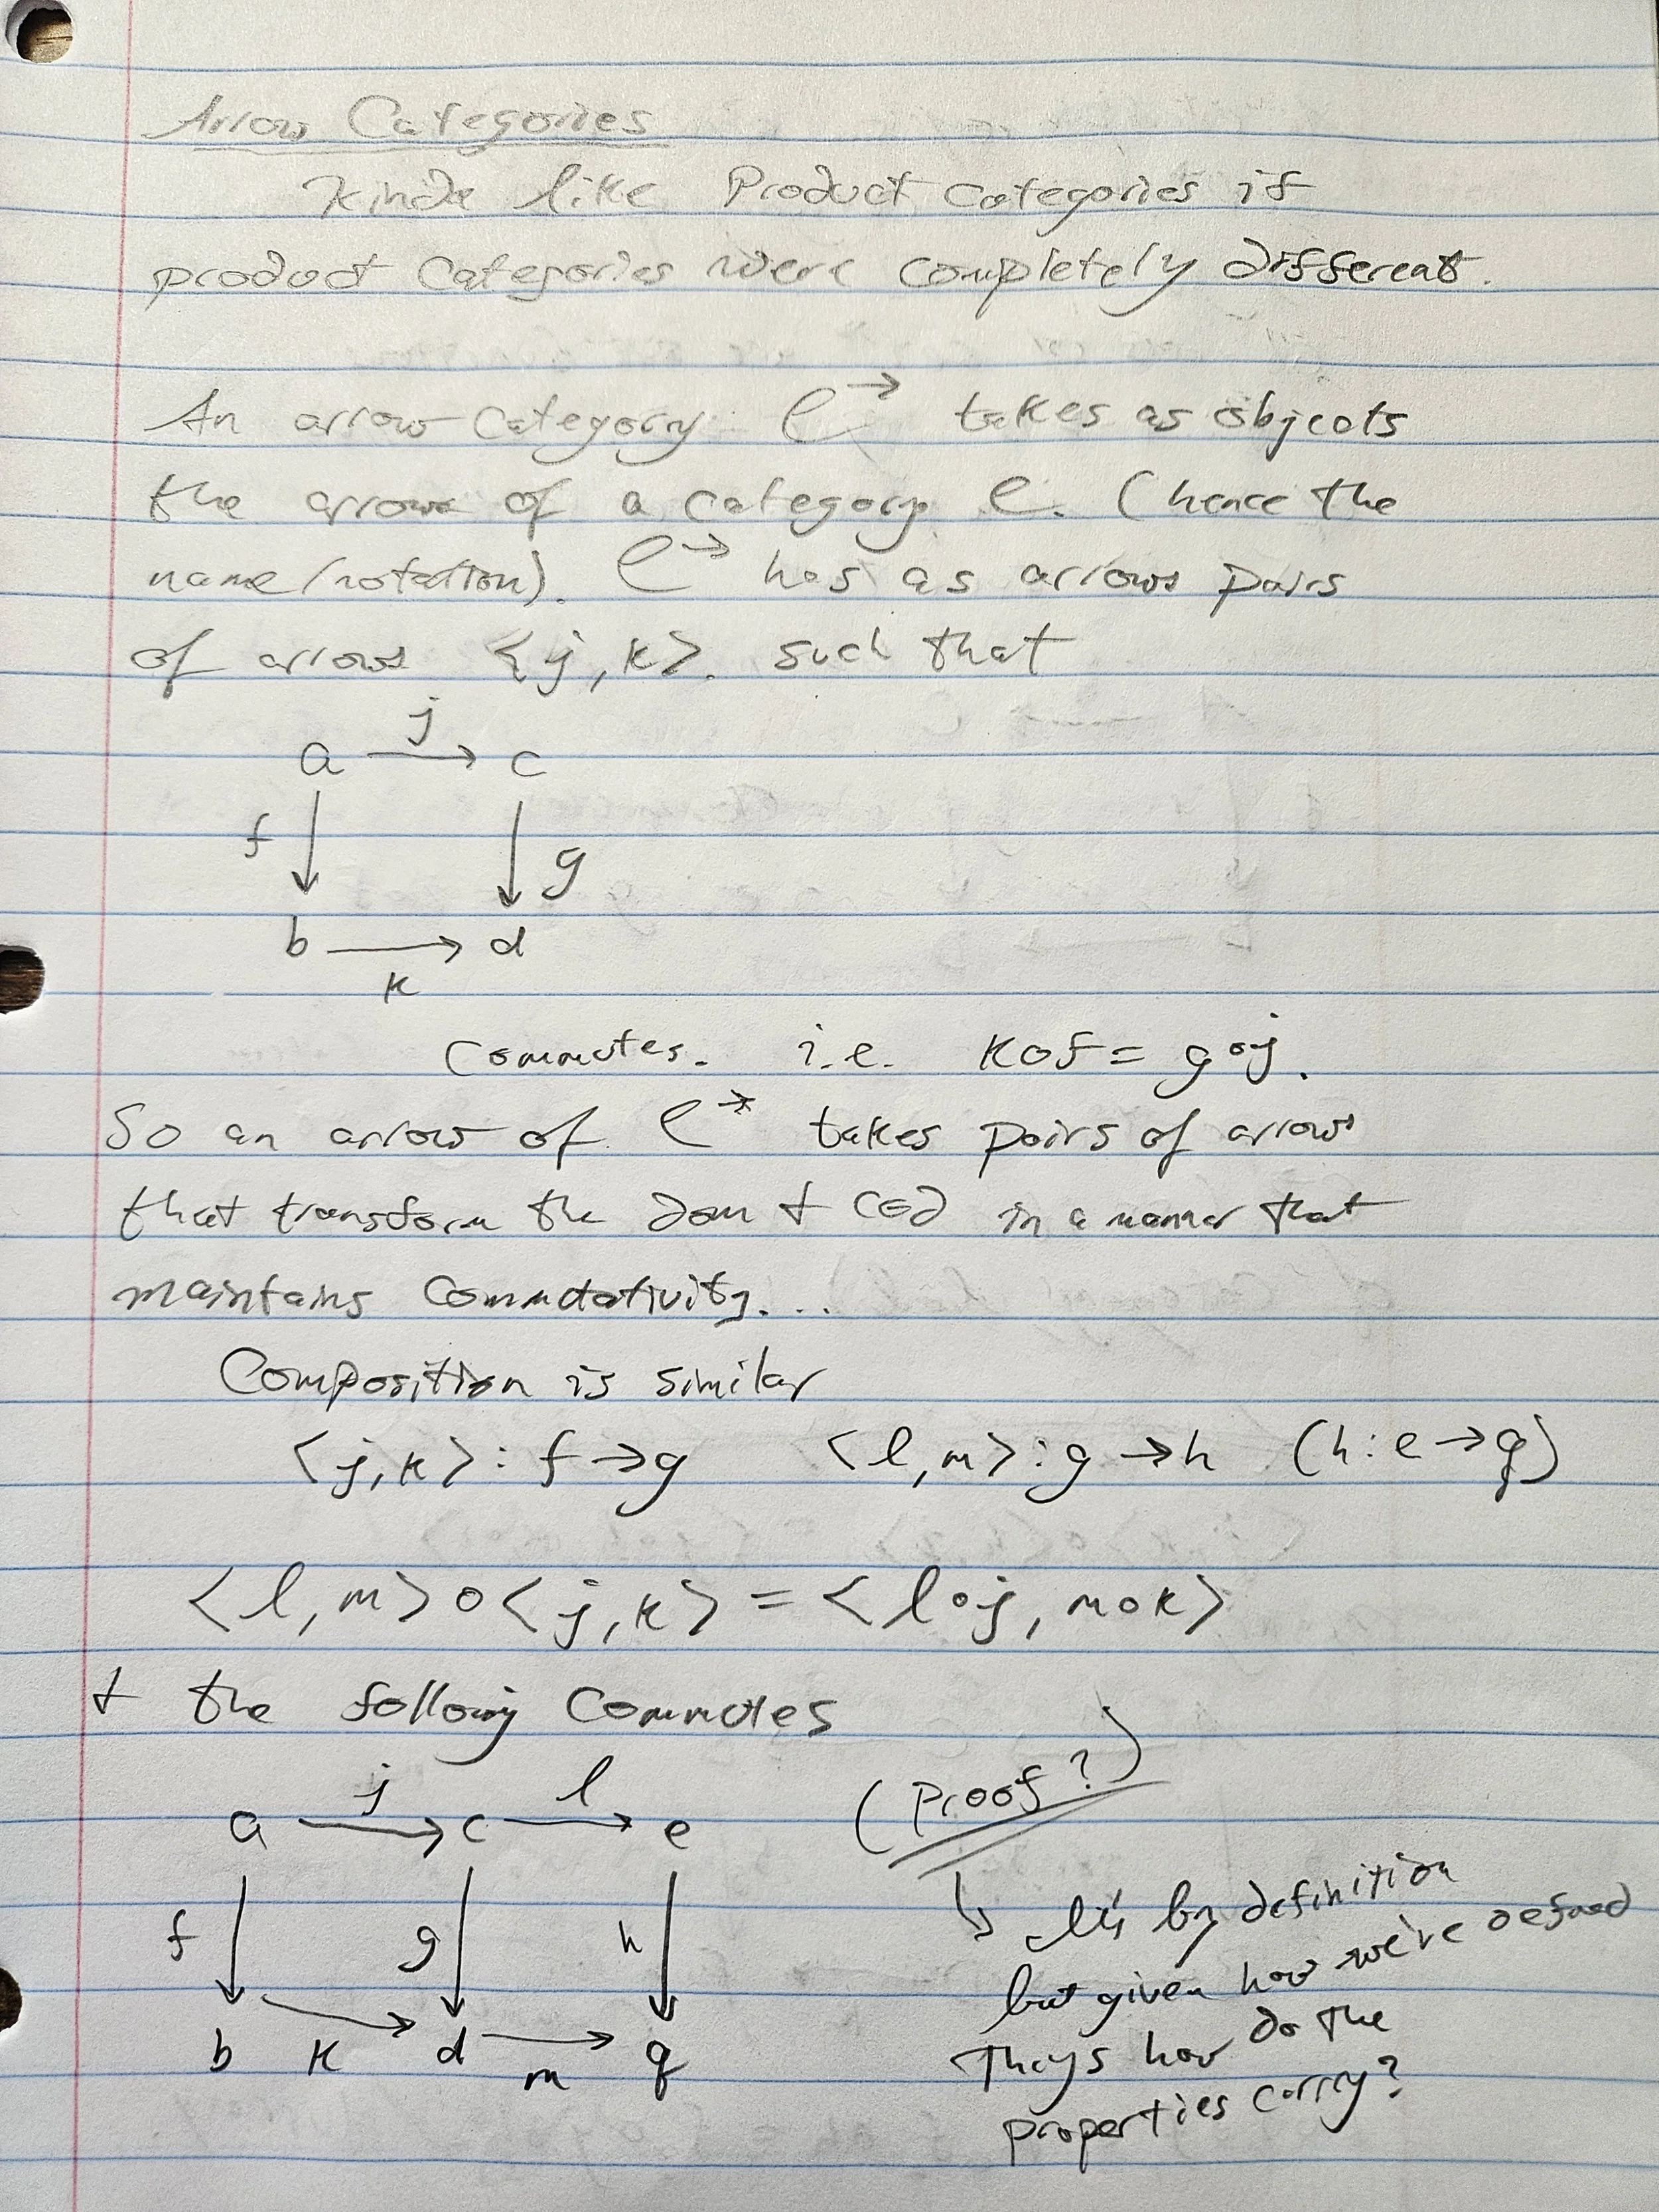 Arrow Categories
Kinda like Product Categories if
product Categories were completely different.
An arrow category C→ takes as objects
the arrows of a category C. (hence the
name/notation). C→ has as arrows pairs
of arrows <j,k>. such that
j
a → c
f ↓ ↓ g
b → d
k
Commutes. i.e. k∘f = g∘j.
So an arrow of C→ takes pairs of arrows
that transform the dom + cod in a manner that
maintains Commutativity...
Composition is similar
<j,k>: f→g <l,m>: g→h (h: e→q)
<l,m>∘<j,k> = <l∘j, m∘k>
+ the following Commutes
(Proof?)
j l
a → c → e
f ↓ g ↓ h ↓
b → d → q
k m
↳ It's by definition
but given how we've defined
how do the
properties carry?